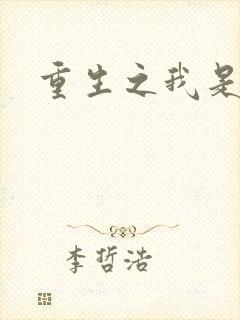 重生之我是
李哲浩